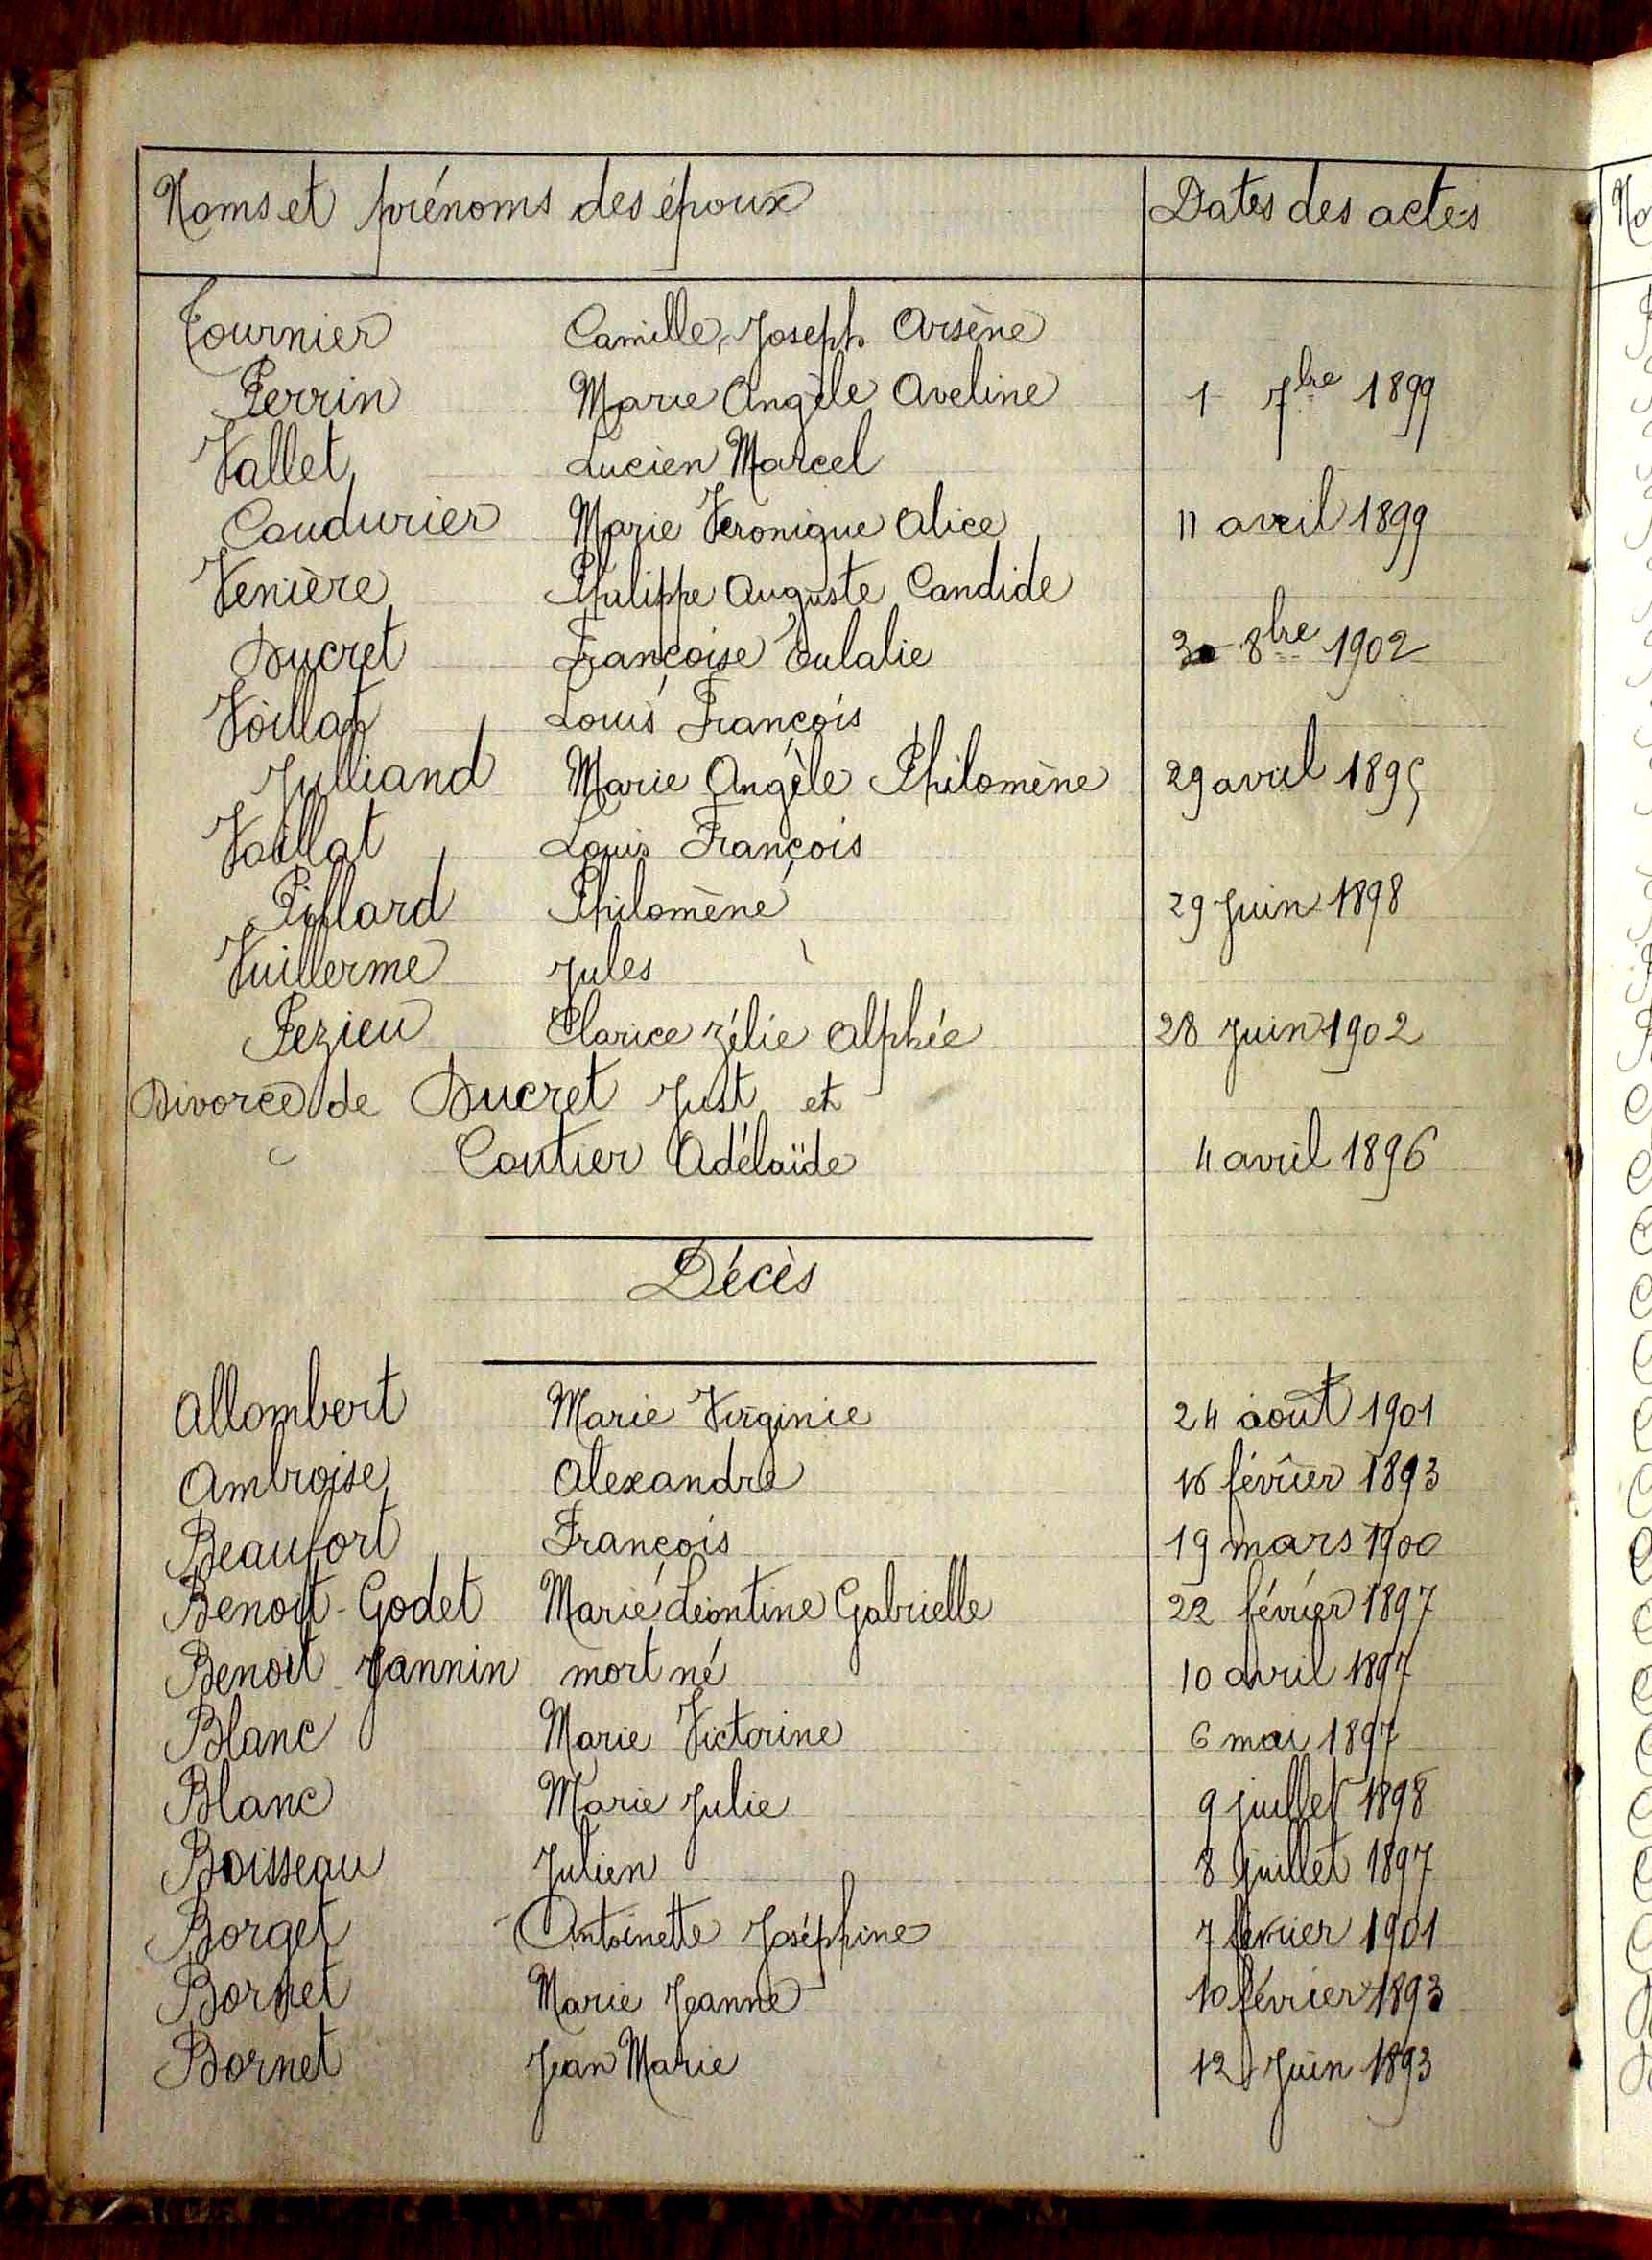 Noms et prénoms des époux Dates des actes
Tournier Camille, Joseph Arsène
Perrin Marie Angèle Aveline 1 7bre 1899
Vallet Lucien Marcel
Coudurier Marie Veronique Alice 11 avril 1899
Venière Philippe Auguste Candide
Ducret Françoise Eulalie 8bre 1902
Voillat Louis François
Julliand Marie Angèle Philomène 29 avril 1895
Vaillat Louis François
Pillard Philomène 29 Juin 1898
Vuillerme Jules
Pezieu Clarice Zélie Alphée 28 Juin 1902
Divorce de Ducret Just et
Coutier Adélaïde 4 avril 1896
Décès
Allombert Marie Virginie 24 août 1901
Ambroise Alexandre 16 février 1893
Beaufort François 19 mars 1900
Benoit-Godet Marie Léontine Gabrielle 22 février 1897
Benoit Jannin mort né 10 avril 1897
Blanc Marie Victorine 6 mai 1897
Blanc Marie Julie 9 juillet 1898
Boisseau Julien 8 juillet 1897
Borget Antoinette Joséphine 7 février 1901
Bornet Marie Jeanne 10 février 1893
Bornet Jean Marie 12 Juin 1893